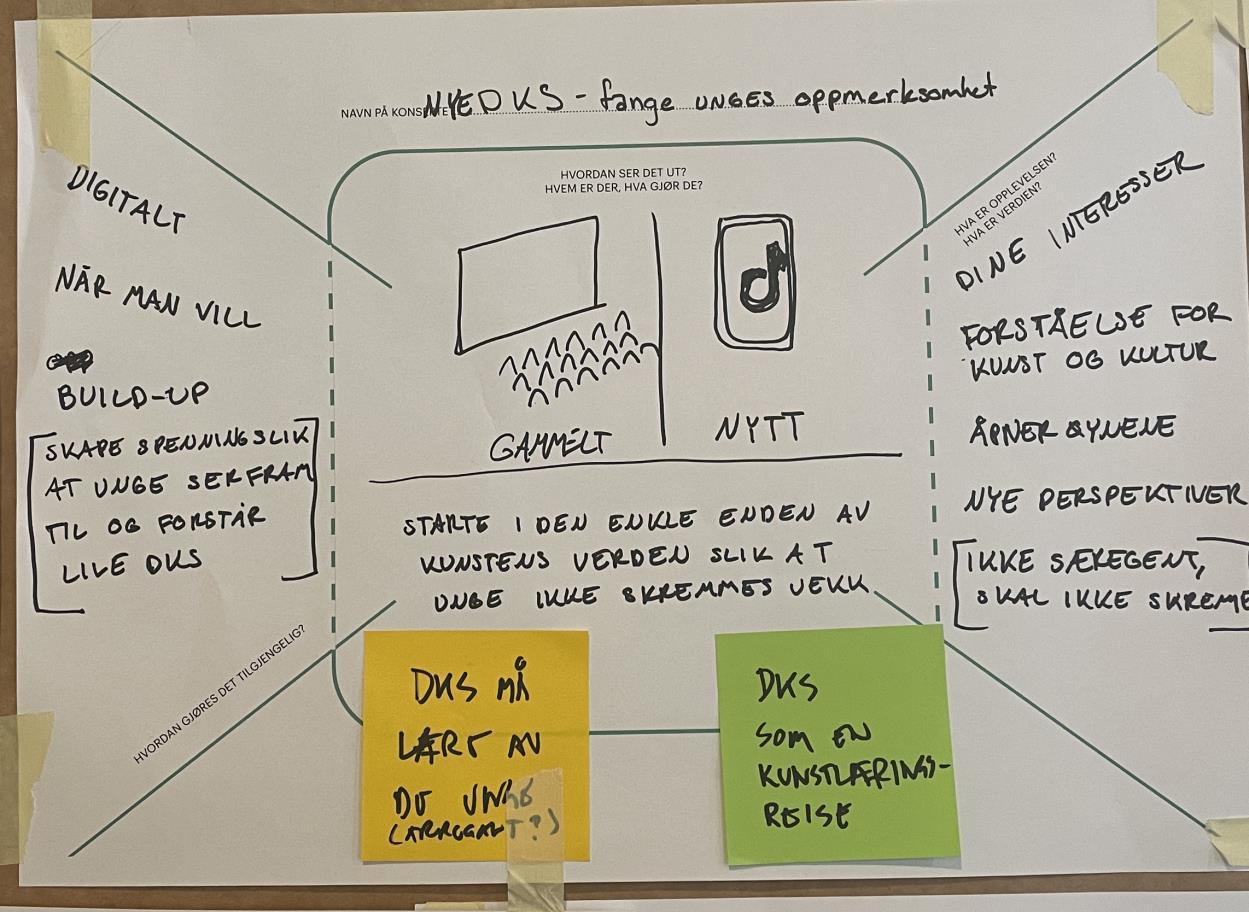 NAVN PÅ KONSEPTET NYE DKS - fange UNGES oppmerksomhet
DIGITALT
NÅR MAN VILL
BUILD-UP
SKAPE SPENNING SLIK
AT UNGE SER FRAM
TIL OG FORSTÅR
LIVE DKS
HVORDAN GJØRES DET TILGJENGELIG?
HVORDAN SER DET UT?
HVEM ER DER, HVA GJØR DE?
GAMMELT
NYTT
STARTE I DEN ENKLE ENDEN AV
KUNSTENS VERDEN SLIK AT
UNGE IKKE SKREMMES VEKK
HVA ER OPPLEVELSEN?
HVA ER VERDIEN?
DINE INTERESSER
FORSTÅELSE FOR
KUNST OG KULTUR
ÅPNER ØYNENE
NYE PERSPEKTIVER
IKKE SÆREGENT,
SKAL IKKE SKREME
DKS MÅ
LÆRE AV
DE UNGE
(ARROGANT?)
DKS
SOM EN
KUNSTLÆRINGS-
REISE